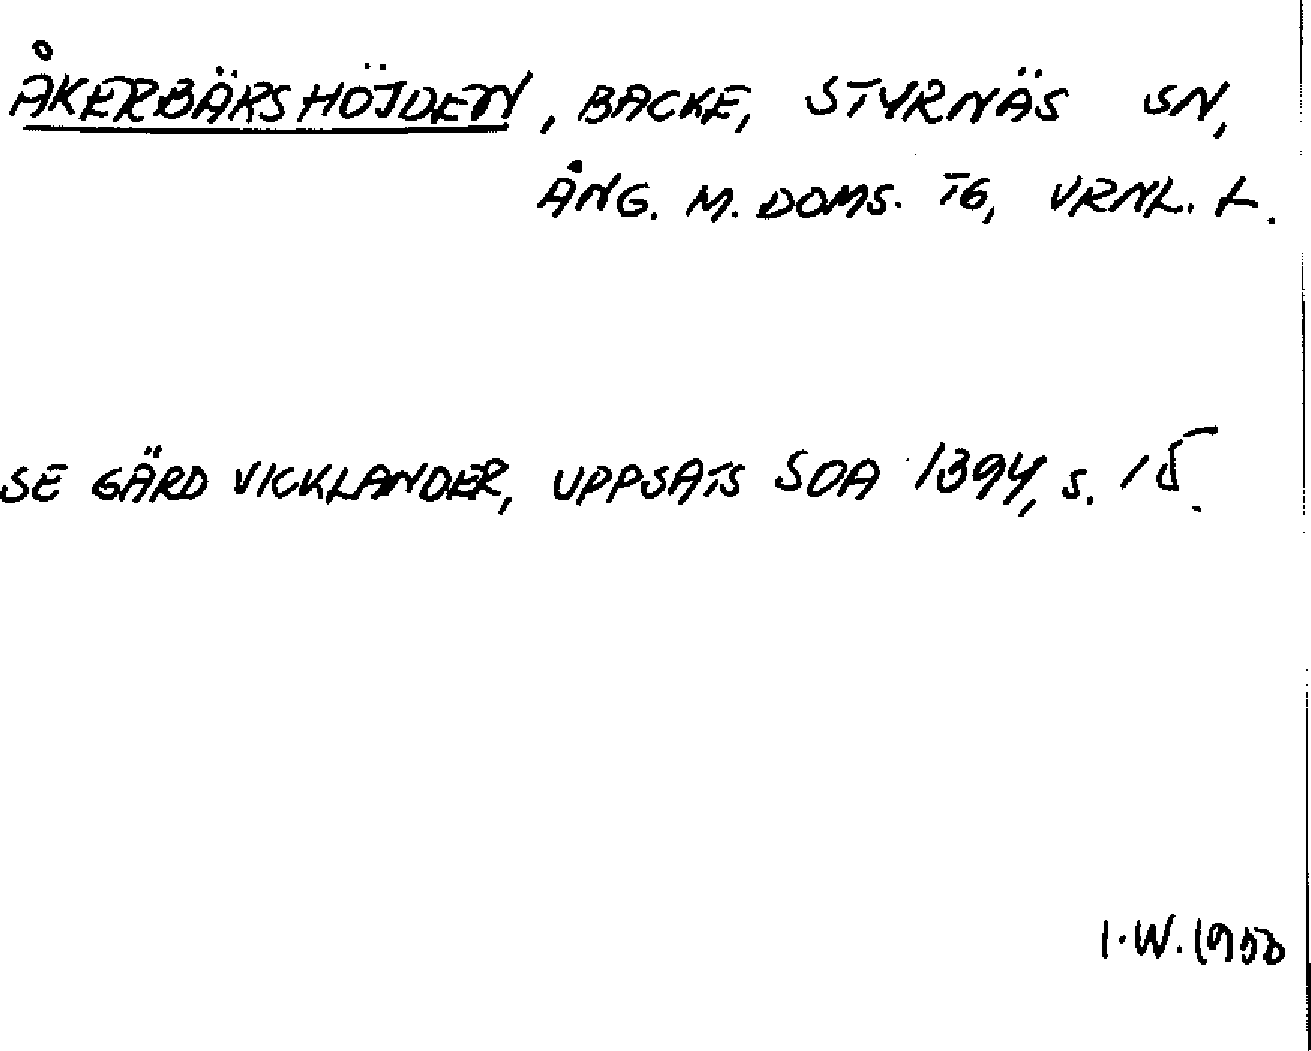 ÅKERBÄRSHÖJDEN, BACKE, STYRNÄS SN,
ÅNG. M. DOMS. TG, VRNL. L.
SE GÄRD VICKLANDER, UPPSATS SOA 1394, S. 15.
I.W. 1950